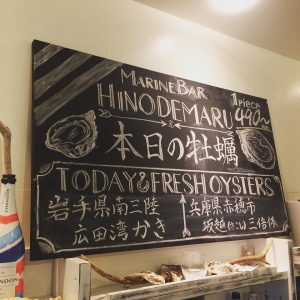 MARINE BAR
HINODEMARU
1piece
490~
本日の牡蠣
TODAY'S FRESH OYSTERS
岩手県南三陸
広田湾かき
兵庫県赤穂市
坂越(さこし)三倍体
CHANDON